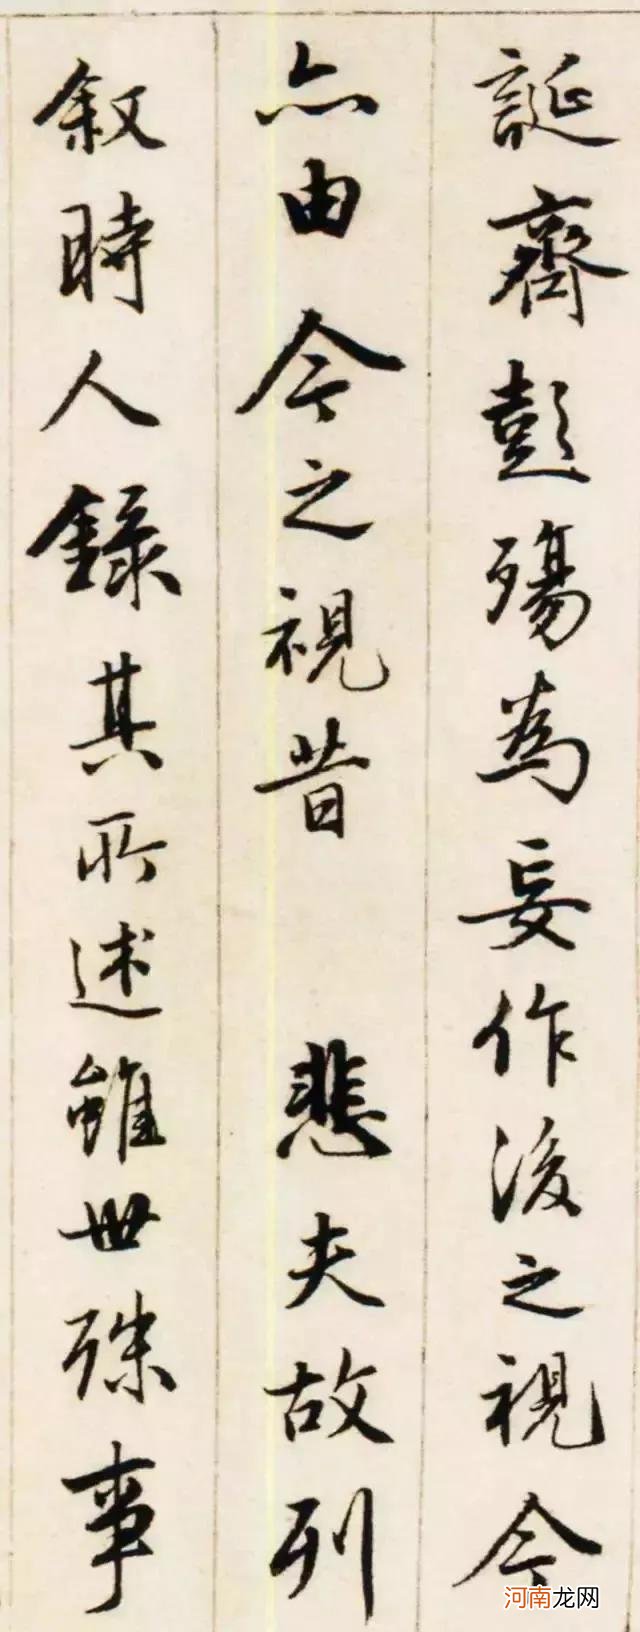 誕齊彭殤為妄作後之視今
亦由今之視昔 悲夫故列
敘時人錄其所述雖世殊事
河南龙网